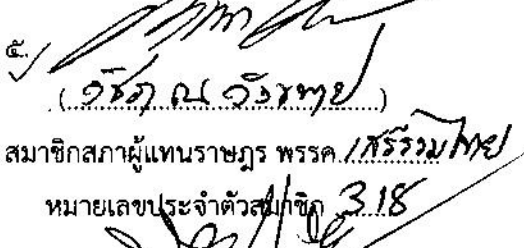 ๕.
(วัชรา ณ วังขนาย)
สมาชิกสภาผู้แทนราษฎร พรรค เสรีรวมไทย
หมายเลขประจำตัวสมาชิก 318